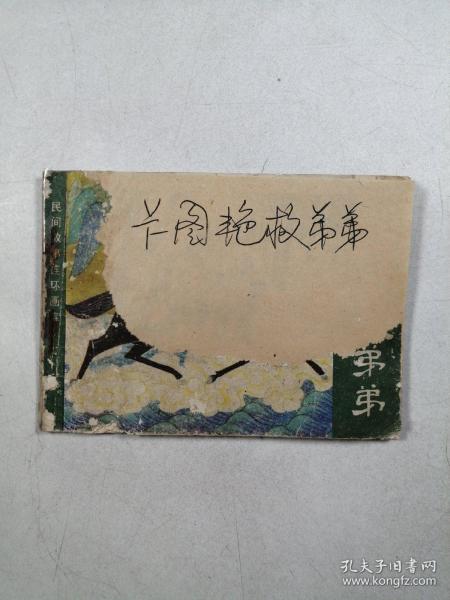 卡图艳救弟弟
民间故事连环画
弟弟
孔夫子旧书网
www.kongfz.com